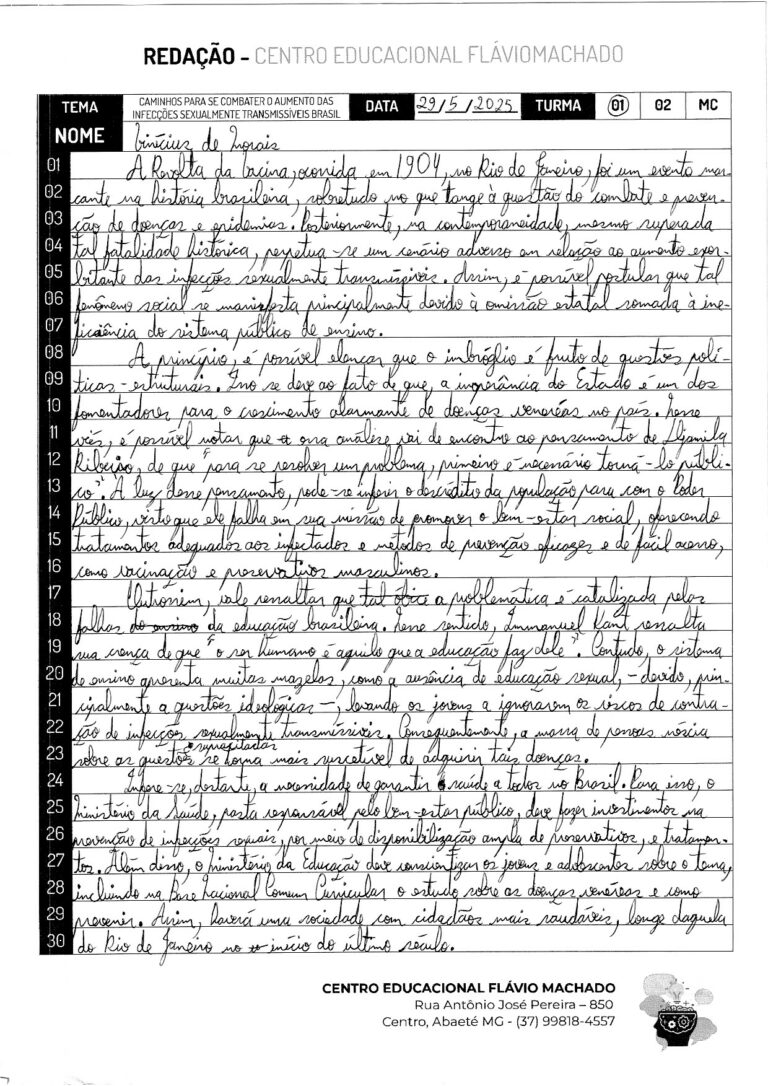 REDAÇÃO - CENTRO EDUCACIONAL FLÁVIOMACHADO
TEMA CAMINHOS PARA SE COMBATER O AUMENTO DAS INFECÇÕES SEXUALMENTE TRANSMISSÍVEIS BRASIL DATA 29/5/2025 TURMA 01 02 MC
NOME Vinícius de Morais
01 A Revolta da Vacina, ocorrida em 1904, no Rio de Janeiro, foi um evento mar-
02 cante na história brasileira, sobretudo no que tange à questão do combate e preven-
03 ção de doenças e epidemias. Posteriormente, na contemporaneidade, mesmo superada
04 tal fatalidade histórica, perpetua-se um cenário adverso em relação ao aumento exor-
05 bitante das infecções sexualmente transmissíveis. Assim, é possível postular que tal
06 fenômeno social se manifesta principalmente devido à omissão estatal somada à ine-
07 ficiência do sistema público de ensino.
08 A princípio, é possível elencar que o imbróglio é fruto de questões polí-
09 ticas-estruturais. Isso se deve ao fato de que, a inoperância do Estado é um dos
10 fomentadores para o crescimento alarmante de doenças venéreas no país. Nesse
11 viés, é possível notar que essa análise vai de encontro ao pensamento de Djamila
12 Ribeiro, de que "para se resolver um problema, primeiro é necessário torná-lo públi-
13 co". À luz desse pensamento, pode-se inferir o descrédito da população para com o Poder
14 Público, visto que ele falha em sua missão de promover o bem-estar social, oferecendo
15 tratamentos adequados aos infectados e métodos de prevenção eficazes e de fácil acesso,
16 como vacinação e preservativos masculinos.
17 Outrossim, vale ressaltar que tal óbice a problemática é catalizada pelas
18 falhas do ensino da educação brasileira. Nesse sentido, Immanuel Kant ressalta
19 sua crença de que "o ser humano é aquilo que a educação faz dele". Contudo, o sistema
20 de ensino apresenta muitas mazelas, como a ausência de educação sexual, - devido, prin-
21 cipalmente a questões ideológicas -, levando os jovens a ignorarem os riscos de contra-
22 ção de infecções sexualmente transmissíveis. Consequentemente, a massa de pessoas néscia
23 sobre as questões supracitadas se torna mais suscetível de adquirir tais doenças.
24 Infere-se, destarte, a necessidade de garantir saúde a todos no Brasil. Para isso, o
25 Ministério da Saúde, pasta responsável pelo bem-estar público, deve fazer investimentos na
26 prevenção de infecções sexuais, por meio de disponibilização ampla de preservativos, e tratamen-
27 tos. Além disso, o Ministério da Educação deve conscientizar os jovens e adolescentes sobre o tema,
28 incluindo na Base Nacional Comum Curricular o estudo sobre as doenças venéreas e como
29 prevenir. Assim, haverá uma sociedade com cidadãos mais saudáveis, longe daquela
30 do Rio de Janeiro no início do último século.
CENTRO EDUCACIONAL FLÁVIO MACHADO
Rua Antônio José Pereira – 850
Centro, Abaeté MG - (37) 99818-4557